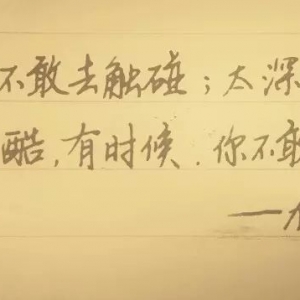 不敢去触碰；太深
酷，有时候．你不敢
——